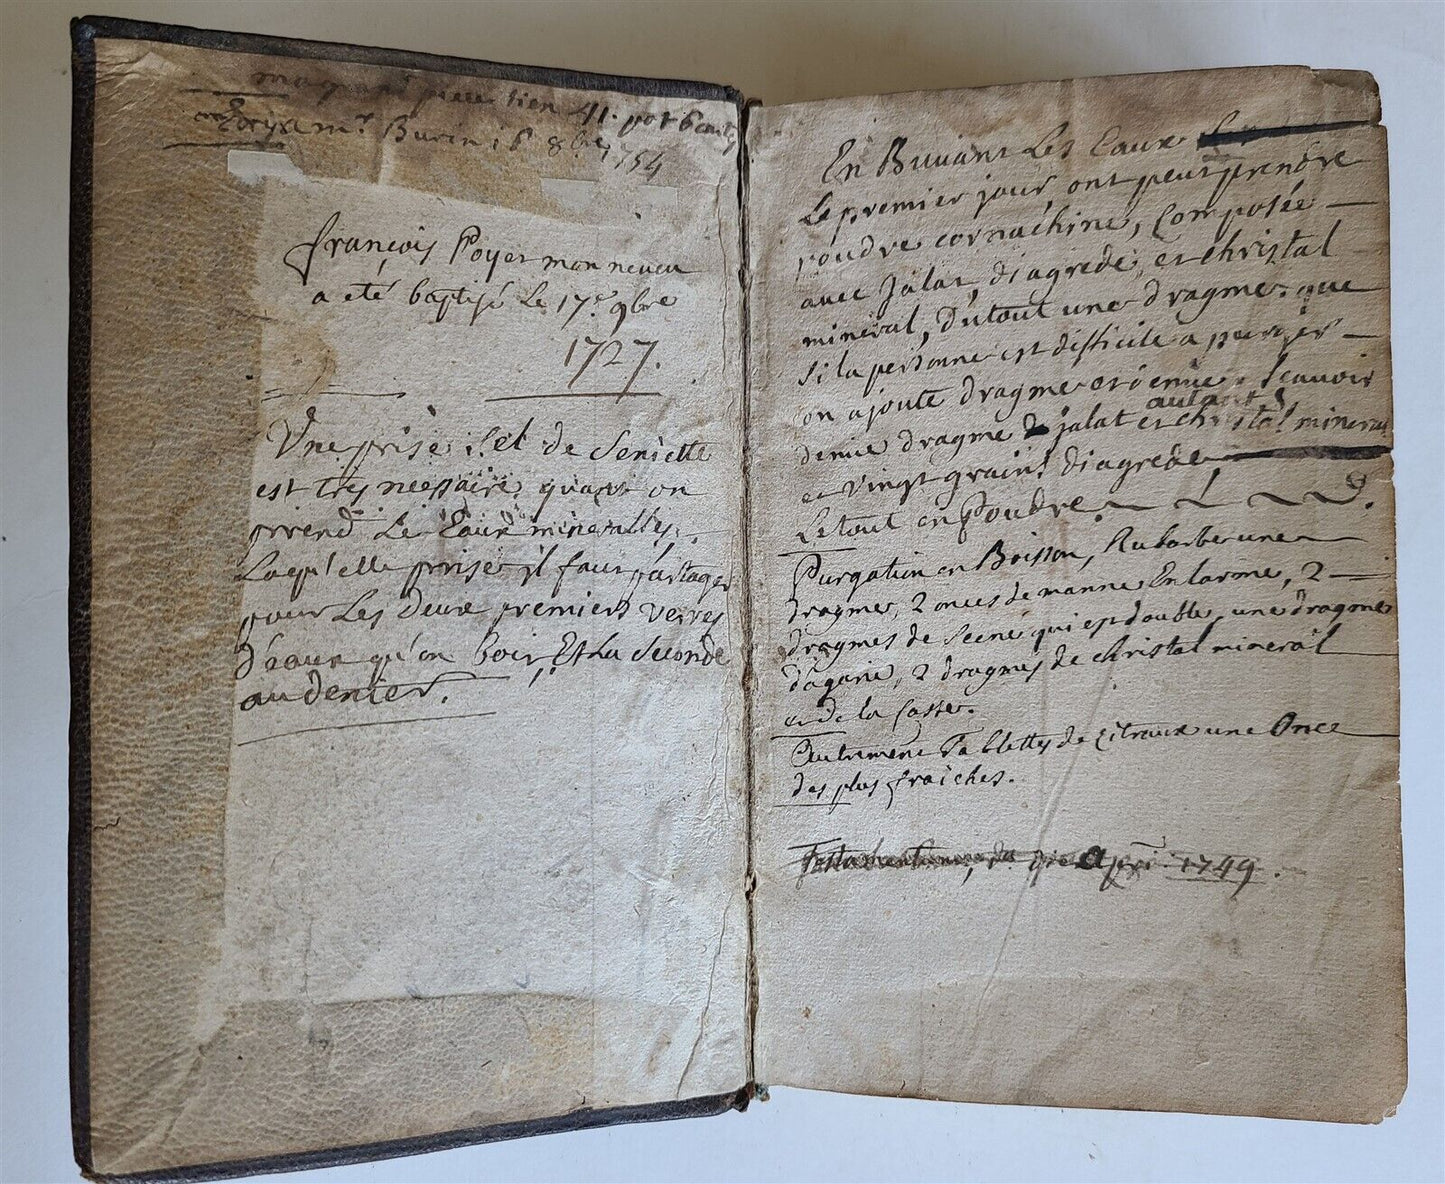 tien 41. pot
mr. Burin 16 8bre 1754
françois Poyet mon neveu
a eté baptisé Le 17e. 9bre
1727.
Une prise Sel de Seniette
est tres necessaire, quant on
prend Le Eaux mineralles.
Laqu'elle prise il faut partager
pour Les deux premiers verres
d'eaux qu'on boit, Et La Seconde
au denier.
En Buvant Les Eaux
Le premier jour, ont peut prendre
poudre cornachine, Composée
avec Jalat, diagrede, et christal
mineral, du tout une dragme. que
Si la personne est difficile a purger
on ajoute dragme et demie, Scavoir
autant
demie dragme jalat et christal mineral
et vingt grains diagrede
Le tout en Poudre.
Purgation en Boisson, Rubarbe une
dragme, 2 onces de manne En larme, 2
dragmes de Seené qui est double, une dragme
d'agaric, 2 dragmes de christal mineral
et de la Casse.
Autrement Tablettes de Citraux une Once
des plus fraiches.
1749.